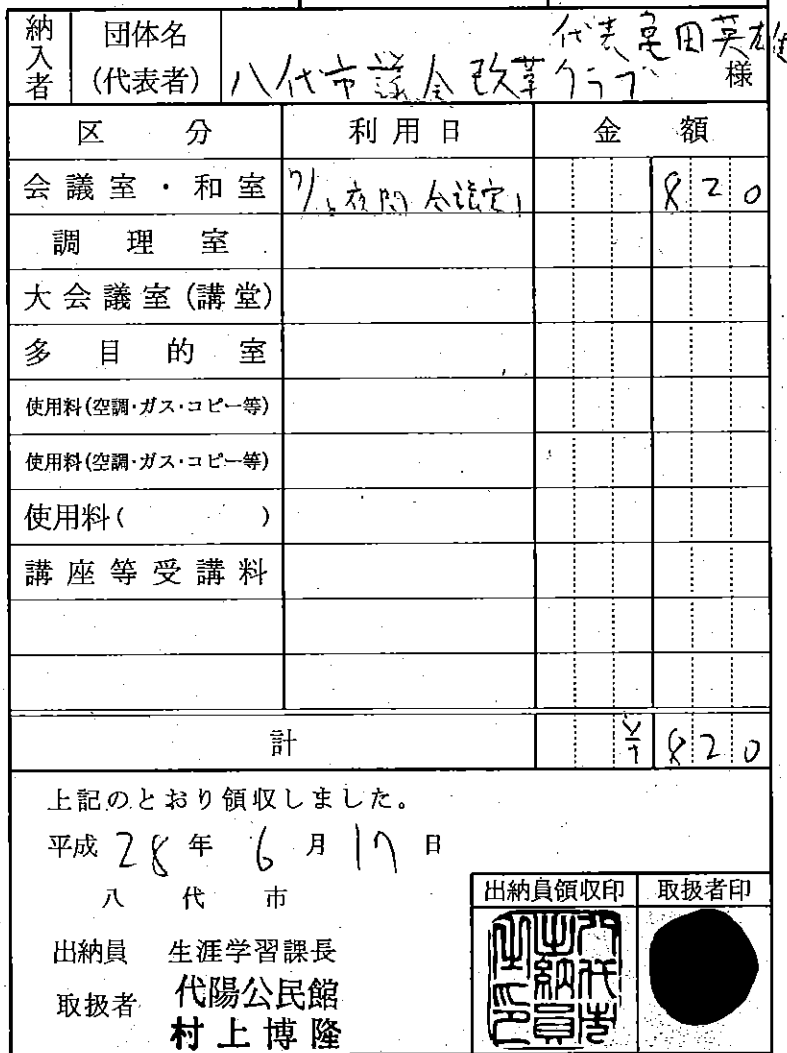 納入者 団体名(代表者) 八代市議会改革クラブ 代表亀田英雄 様
区分 利用日 金額
会議室・和室 夜間 会議室1 820
調理室
大会議室(講堂)
多目的室
使用料(空調・ガス・コピー等)
使用料(空調・ガス・コピー等)
使用料( )
講座等受講料
計 ¥820
上記のとおり領収しました。
平成28年6月17日
八代市
出納員領収印 取扱者印
出納員 生涯学習課長
取扱者 代陽公民館
村上博隆
八代市出納員之印